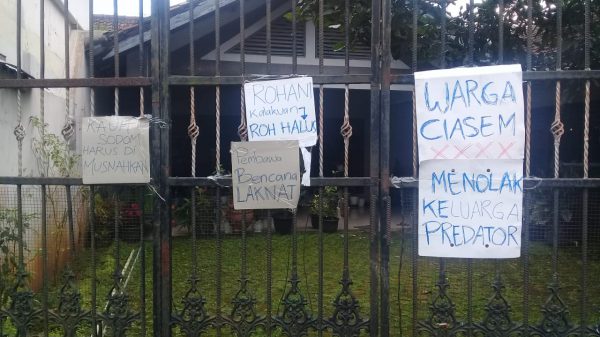 KAUM
SODOM
HARUS DI
MUSNAHKAN
ROHAN
KalakuaN
ROH HALUS
Pembawa
Bencana
LAKNAT
WARGA
CIASEM
XXXX
MENOLAK
KELUARGA
PREDATOR